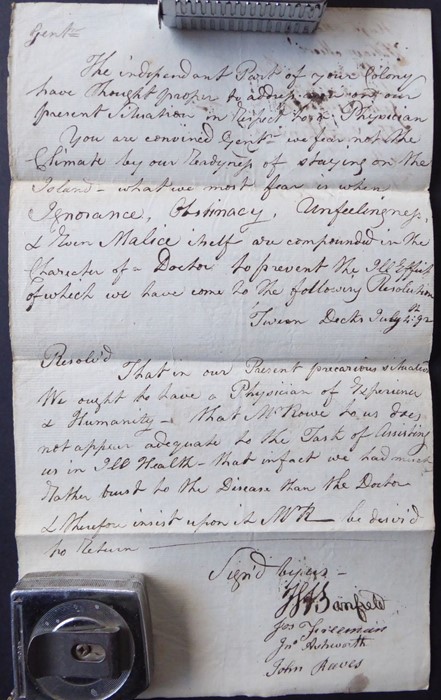 Gentn
The independant Part of your Colony
have thought proper to address you on our
present Situation in respect to a Physician
You are convinced Gentn we fear not the
Climate by our Readyness of staying on the
Island – what we most fear is when
Ignorance, Obstinacy, Unfeelingness,
& Even Malice itself are compounded in the
Character of a Doctor to prevent the Ill Effect
of which we have come to the following Resolution
Tween Decks July 4th 92
Resolv'd
That in our Present precarious situation
We ought to have a Physician of Experience
& Humanity – that Mr Rowe to us does
not appear adequate to the Task of Assisting
us in Ill Health – that infact we had much
Rather trust to the Disease than the Doctor
& therefore insist upon it Mr R be desir'd
to Return
Sign'd by us –
Banfield
Jos Freeman
Jno Ashworth
John Raves